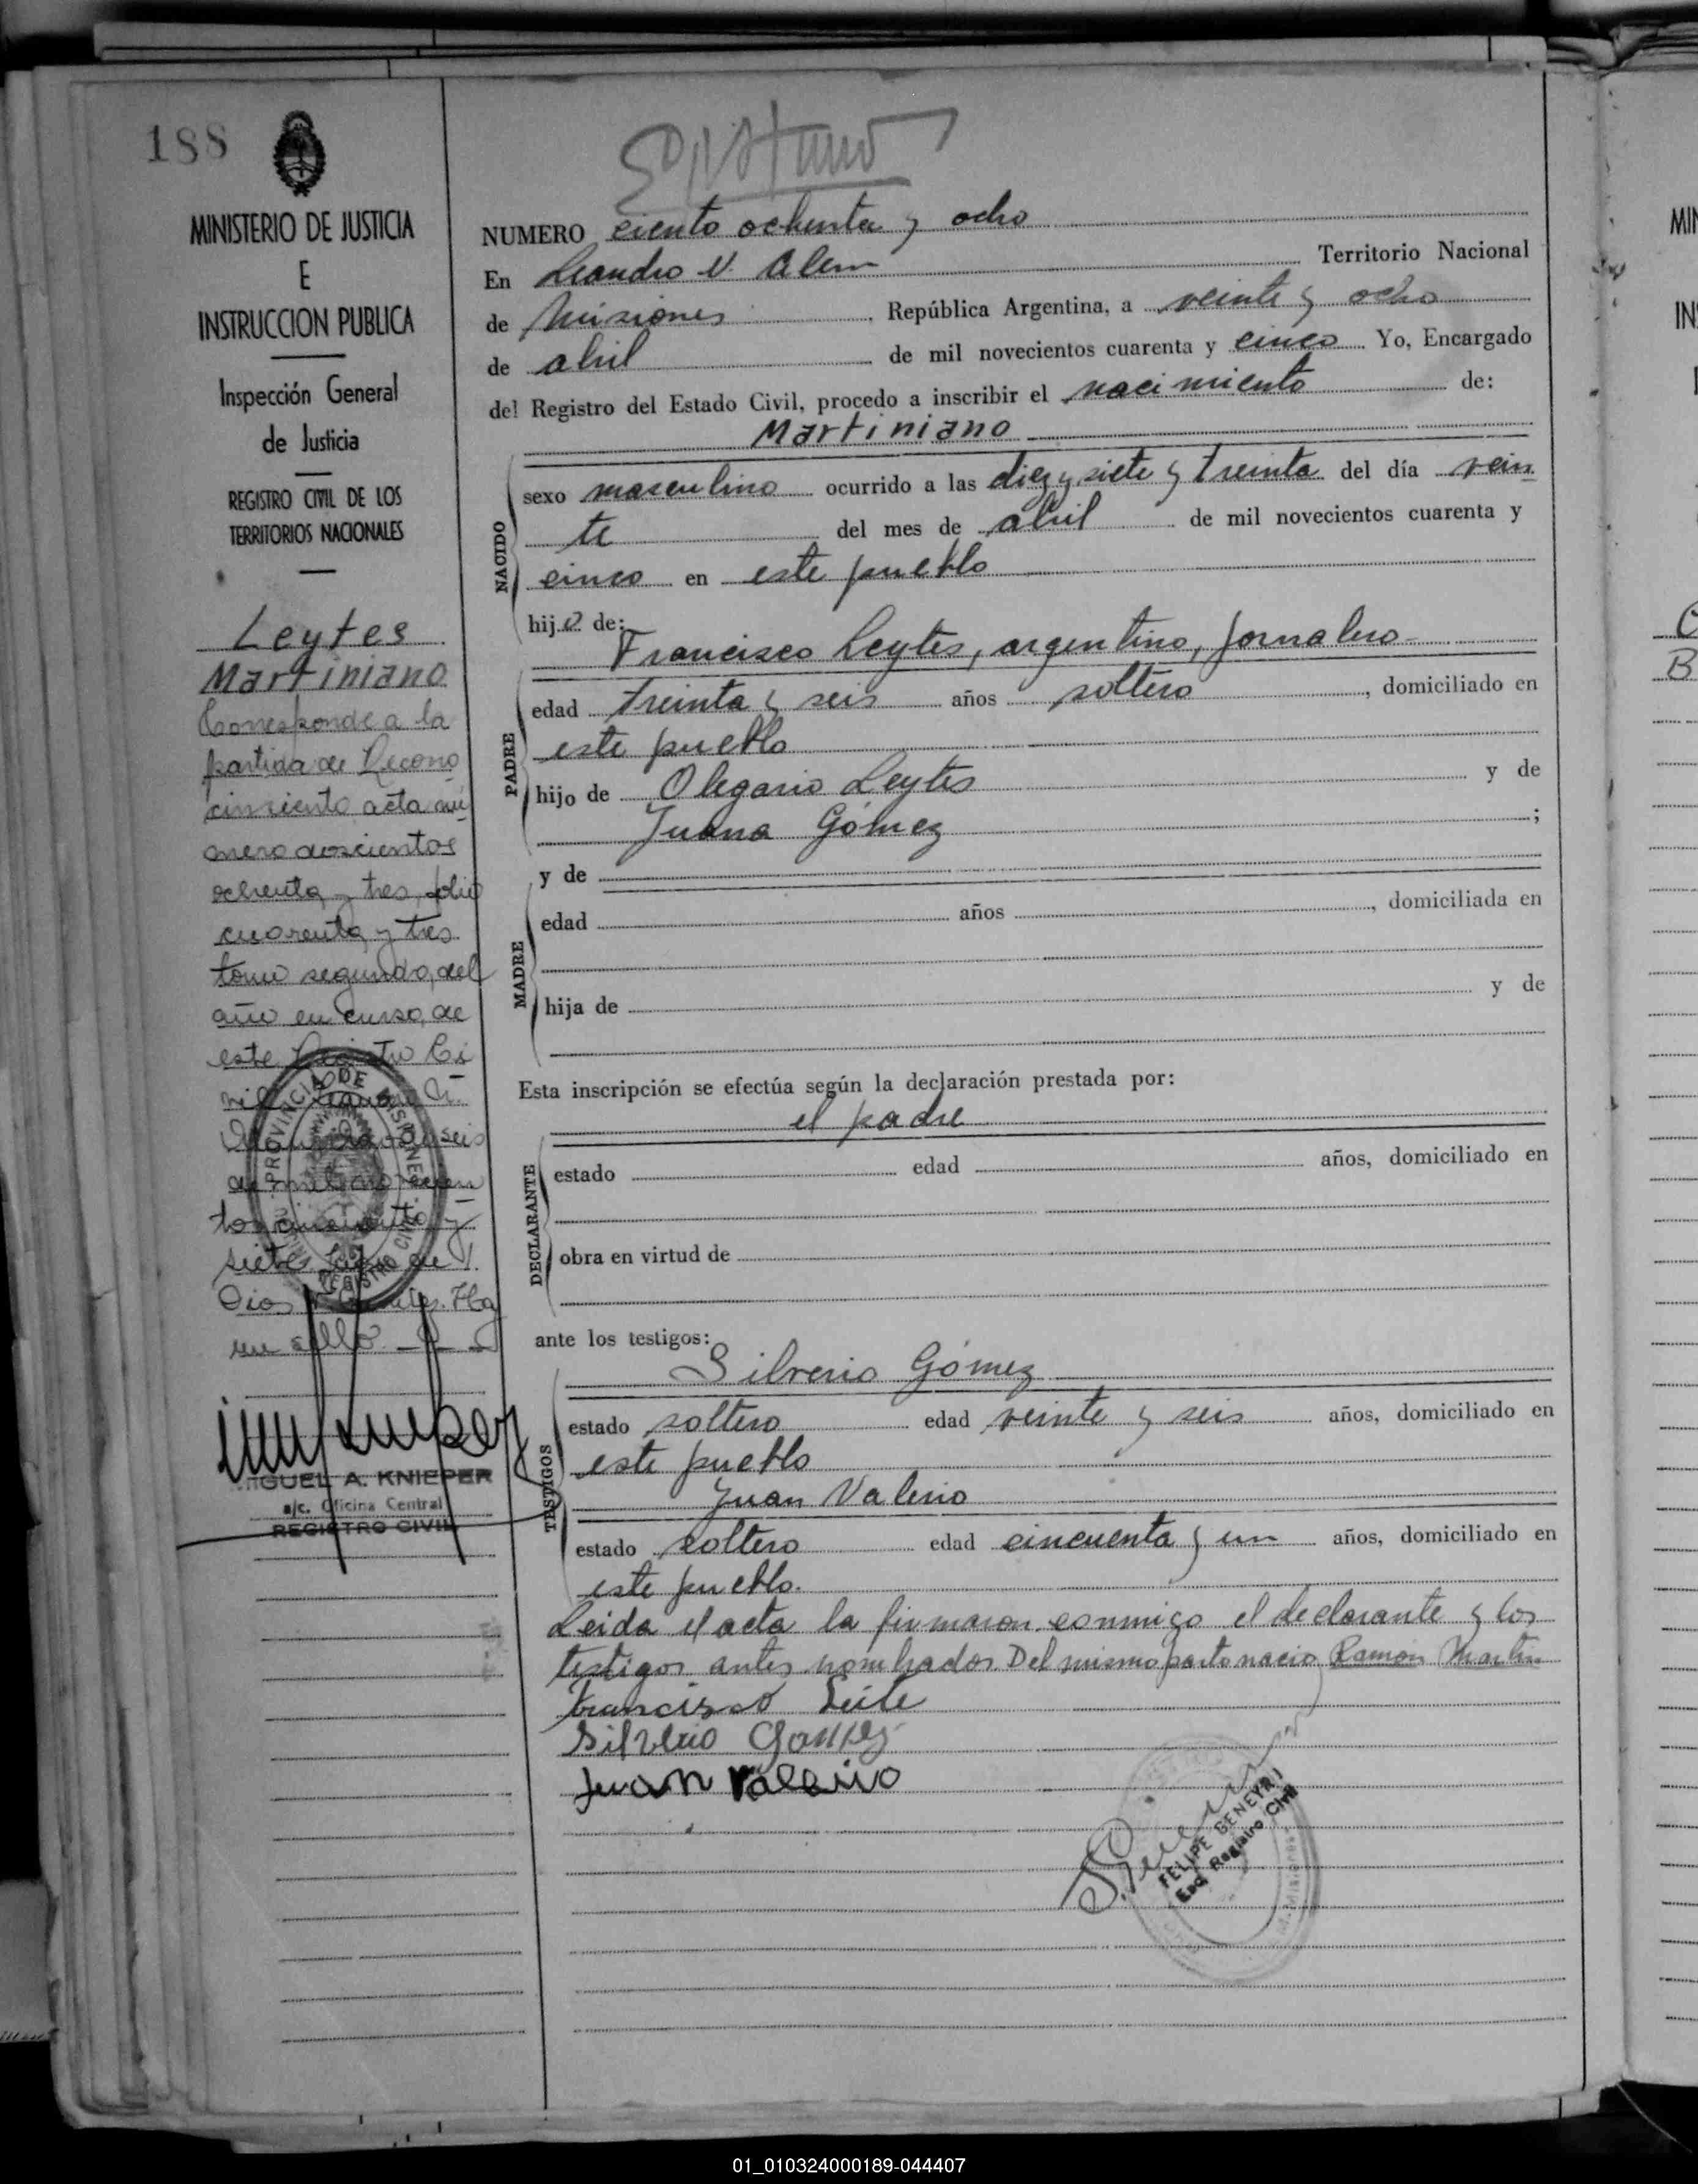 188
MINISTERIO DE JUSTICIA
E
INSTRUCCION PUBLICA
Inspección General
de Justicia
REGISTRO CIVIL DE LOS
TERRITORIOS NACIONALES
Leytes
Martiniano
Corresponde a la
partida de Recono
cimiento acta nú
mero doscientos
ochenta y tres, folio
cuarenta y tres
tomo segundo, del
año en curso, de
este Registro Ci
vil
seis
de mil novecien
tos cincuenta y
siete
Hay
un sello
PROVINCIA DE MISIONES
REGISTRO CIVIL
MIGUEL A. KNIEPER
a/c. Oficina Central
REGISTRO CIVIL
NUMERO ciento ochenta y ocho
En Leandro N. Alem Territorio Nacional
de Misiones República Argentina, a veinte y ocho
de abril de mil novecientos cuarenta y cinco Yo, Encargado
del Registro del Estado Civil, procedo a inscribir el nacimiento de:
Martiniano
NACIDO
sexo masculino ocurrido a las diez y siete y treinta del día vein
te del mes de abril de mil novecientos cuarenta y
cinco en este pueblo
hijo de:
Francisco Leytes, argentino, jornalero
PADRE
edad treinta y seis años soltero, domiciliado en
este pueblo
hijo de Olegario Leytes y de
Juana Gómez;
y de
MADRE
edad años, domiciliada en
hija de y de
Esta inscripción se efectúa según la declaración prestada por:
el padre
DECLARANTE
estado edad años, domiciliado en
obra en virtud de
ante los testigos:
Silverio Gómez
TESTIGOS
estado soltero edad veinte y seis años, domiciliado en
este pueblo
Juan Valerio
estado soltero edad cincuenta y un años, domiciliado en
este pueblo.
Leida el acta la firmaron conmigo el declarante y los
testigos antes nombrados. Del mismo parto nacio Ramon Martin
Francisco Leite
Silverio Gomez
Juan Valerio
FELIPE BENEYRI
Enc. Registro Civil
01_010324000189-044407